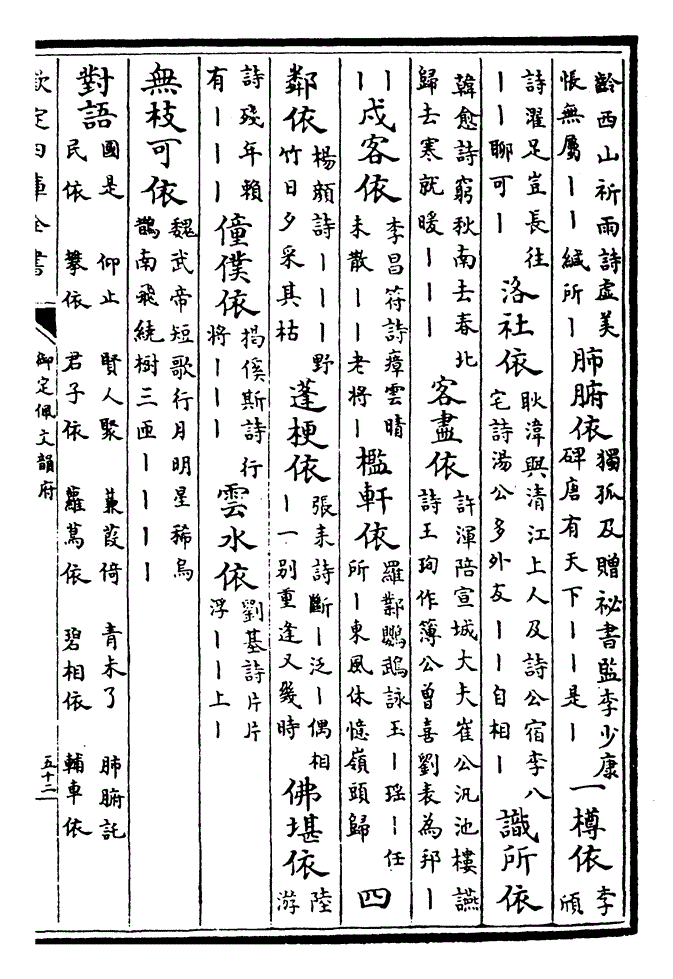 齡西山祈雨詩虛美
悵無屬丨丨緘所丨
肺腑依
獨孤及贈祕書監李少康
碑唐有天下丨丨是丨
一樽依
李
頎
詩濯足豈長往
丨丨聊可丨
洛社依
耿湋與清江上人及詩公宿李八
宅詩湯公多外友丨丨自相丨
識所依
韓愈詩窮秋南去春北
歸去寒就暖丨丨丨
客盡依
許渾陪宣城大夫崔公汎池樓讌
詩王珣作簿公曾喜劉表為邦丨
丨丨
戍客依
李昌符詩瘴雲晴
未散丨丨老將丨
檻軒依
羅鄴鸚鵡詠玉丨瑶丨任
所丨東風休憶嶺頭歸
四
鄰依
楊顔詩丨丨丨野
竹日夕采其枯
蓬梗依
張耒詩斷丨泛丨偶相
丨一别重逢又幾時
佛堪依
陸
游
詩殘年賴
有丨丨丨
僮僕依
揭傒斯詩行
將丨丨丨
雲水依
劉基詩片片
浮丨丨上丨
無枝可依
魏武帝短歌行月明星稀烏
鵲南飛繞樹三匝丨丨丨丨
對語
國是 仰止 賢人聚 蒹葭倚 青未了 肺腑託
民依 攀依 君子依 蘿蔦依 碧相依 輔車依
欽定四庫全書
御定佩文韻府
五十二